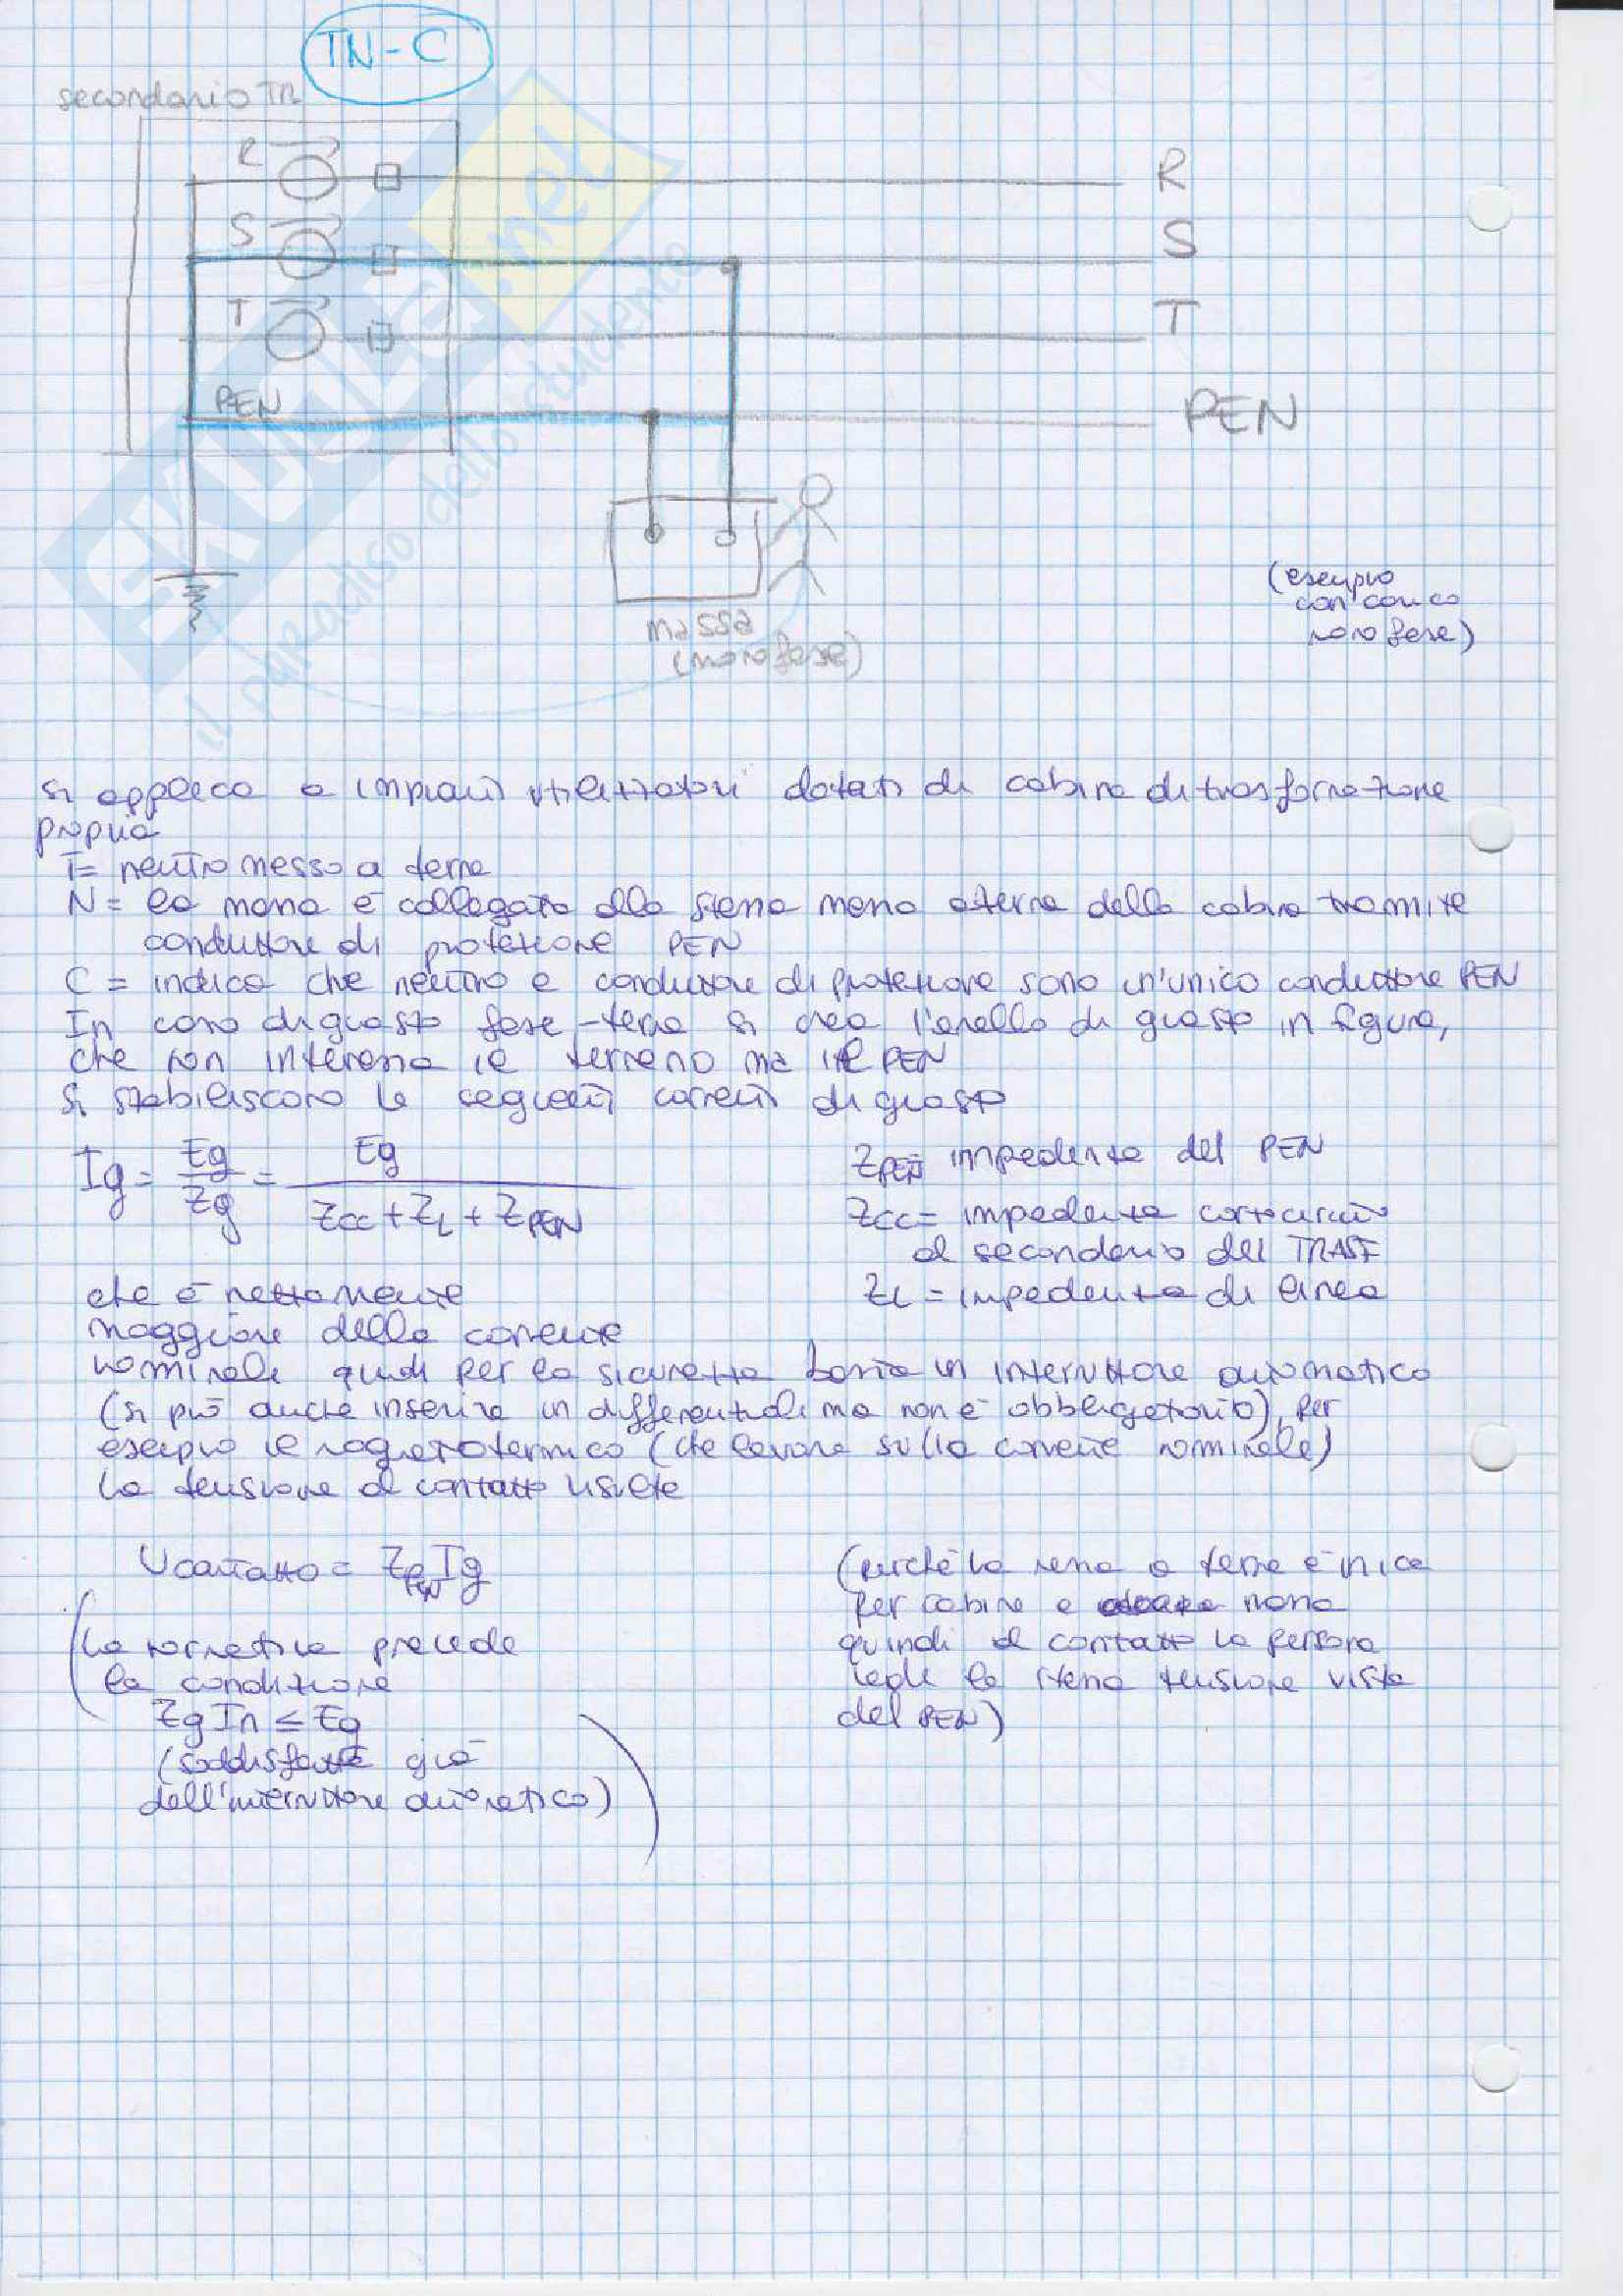 TN-C
secondario TR
R
R
S
S
T
T
PEN
PEN
massa
(monofase)
(esempio
con carico
monofase)
SKUOLA.net
il paradiso dello studente
si applica a impianti utilizzatori dotati di cabina di trasformazione
propria
T= neutro messo a terra
N= la massa è collegata alla stessa messa a terra della cabina tramite
conduttore di protezione PEN
C = indica che neutro e conduttore di protezione sono un'unico conduttore PEN
In caso di guasto fase-terra si crea l'anello di guasto in figura,
che non interessa il terreno ma il PEN
si stabiliscono le seguenti correnti di guasto
Ig = Eg/Zg = Eg/(Zcc + ZL + ZPEN)
ZPEN= impedenza del PEN
Zcc= impedenza cortocircuito
al secondario del TRASF
ZL = impedenza di linea
che è nettamente
maggiore della corrente
nominale quindi per la sicurezza basta un interruttore automatico
(si può anche inserire un differenziale ma non è obbligatorio), per
esempio il magnetotermico (che lavora sulla corrente nominale)
la tensione di contatto risulta
Ucontatto = ZPEN Ig
(perché la messa a terra è unica
per cabina e massa
quindi al contatto la persona
vede la stessa tensione vista
dal PEN)
(la normativa prevede
la condizione
Zg In ≤ Eg
(soddisfatta già
dall'interruttore automatico)
)